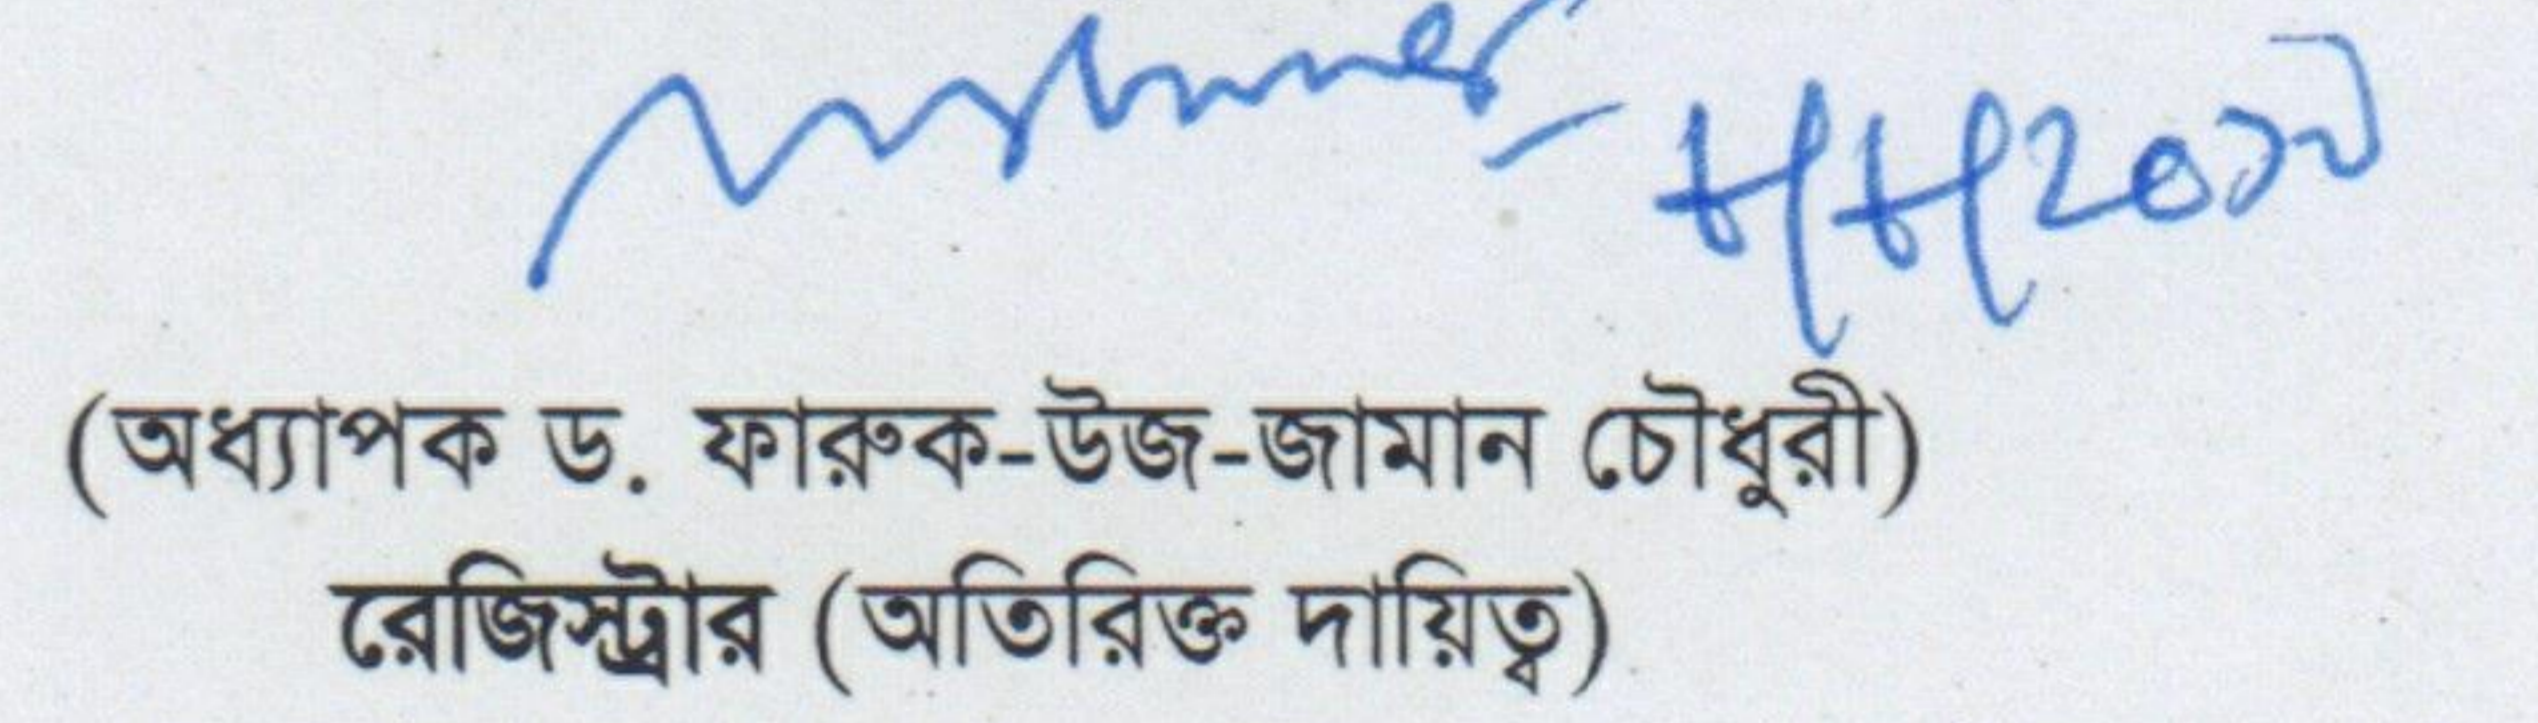 (অধ্যাপক ড. ফারুক-উজ-জামান চৌধুরী)
রেজিস্ট্রার (অতিরিক্ত দায়িত্ব)